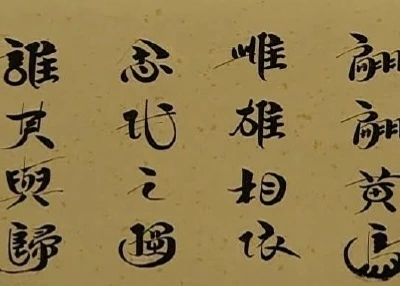 翩翩黄鳥
雌雄相依
念我之獨
誰其與歸